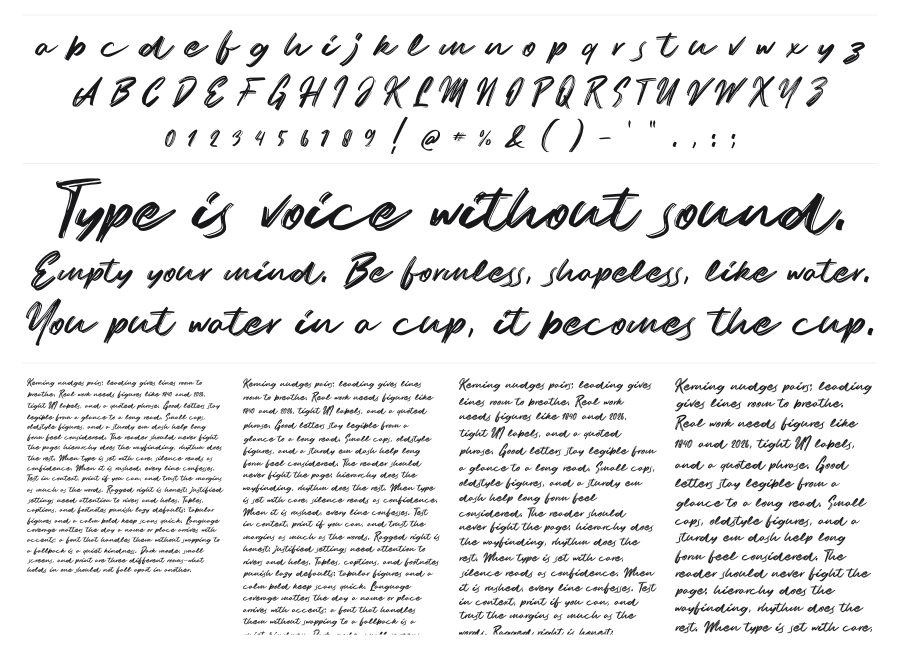 a b c d e f g h i j k l m n o p q r s t u v w x y z
A B C D E F G H I J K L M N O P Q R S T U V W X Y Z
0 1 2 3 4 5 6 7 8 9 ! @ # % & ( ) - ' " . , : ;
Type is voice without sound.
Empty your mind. Be formless, shapeless, like water.
You put water in a cup, it becomes the cup.
Kerning nudges pairs; leading gives lines room to
breathe. Real work needs figures like 1840 and 2026,
tight UI labels, and a quoted phrase. Good letters stay
legible from a glance to a long read. Small caps,
oldstyle figures, and a sturdy em dash help long
form feel considered. The reader should never fight
the page; hierarchy does the wayfinding, rhythm does
the rest. When type is set with care, silence reads as
confidence. When it is rushed, every line confesses.
Test in context, print if you can, and trust the margins
as much as the words. Ragged right is honest; justified
settings need attention to rivers and holes. Tables,
captions, and footnotes punish lazy defaults; tabular
figures and a calm bold keep scans quick. Language
coverage matters the day a name or place arrives with
accents; a font that handles them without swapping to
a fallback is a quiet kindness. Dark mode, small
screens, and print are three different rooms—what
holds in one should not fall apart in another.
Kerning nudges pairs; leading gives lines
room to breathe. Real work needs figures like
1840 and 2026, tight UI labels, and a quoted
phrase. Good letters stay legible from a
glance to a long read. Small caps, oldstyle
figures, and a sturdy em dash help long
form feel considered. The reader should
never fight the page; hierarchy does the
wayfinding, rhythm does the rest. When type
is set with care, silence reads as confidence.
When it is rushed, every line confesses. Test
in context, print if you can, and trust the
margins as much as the words. Ragged right is
honest; justified settings need attention to
rivers and holes. Tables, captions, and footnotes
punish lazy defaults; tabular figures and a
calm bold keep scans quick. Language
coverage matters the day a name or place
arrives with accents; a font that handles
them without swapping to a fallback is a
quiet kindness. Dark mode, small screens,
Kerning nudges pairs; leading gives
lines room to breathe. Real work
needs figures like 1840 and 2026,
tight UI labels, and a quoted
phrase. Good letters stay legible from
a glance to a long read. Small caps,
oldstyle figures, and a sturdy em
dash help long form feel
considered. The reader should
never fight the page; hierarchy does
the wayfinding, rhythm does the
rest. When type is set with care,
silence reads as confidence. When
it is rushed, every line confesses. Test
in context, print if you can, and
trust the margins as much as the
words. Ragged right is honest;
Kerning nudges pairs; leading
gives lines room to breathe.
Real work needs figures like
1840 and 2026, tight UI labels,
and a quoted phrase. Good
letters stay legible from a
glance to a long read. Small
caps, oldstyle figures, and a
sturdy em dash help long
form feel considered. The
reader should never fight the
page; hierarchy does the
wayfinding, rhythm does the
rest. When type is set with care,